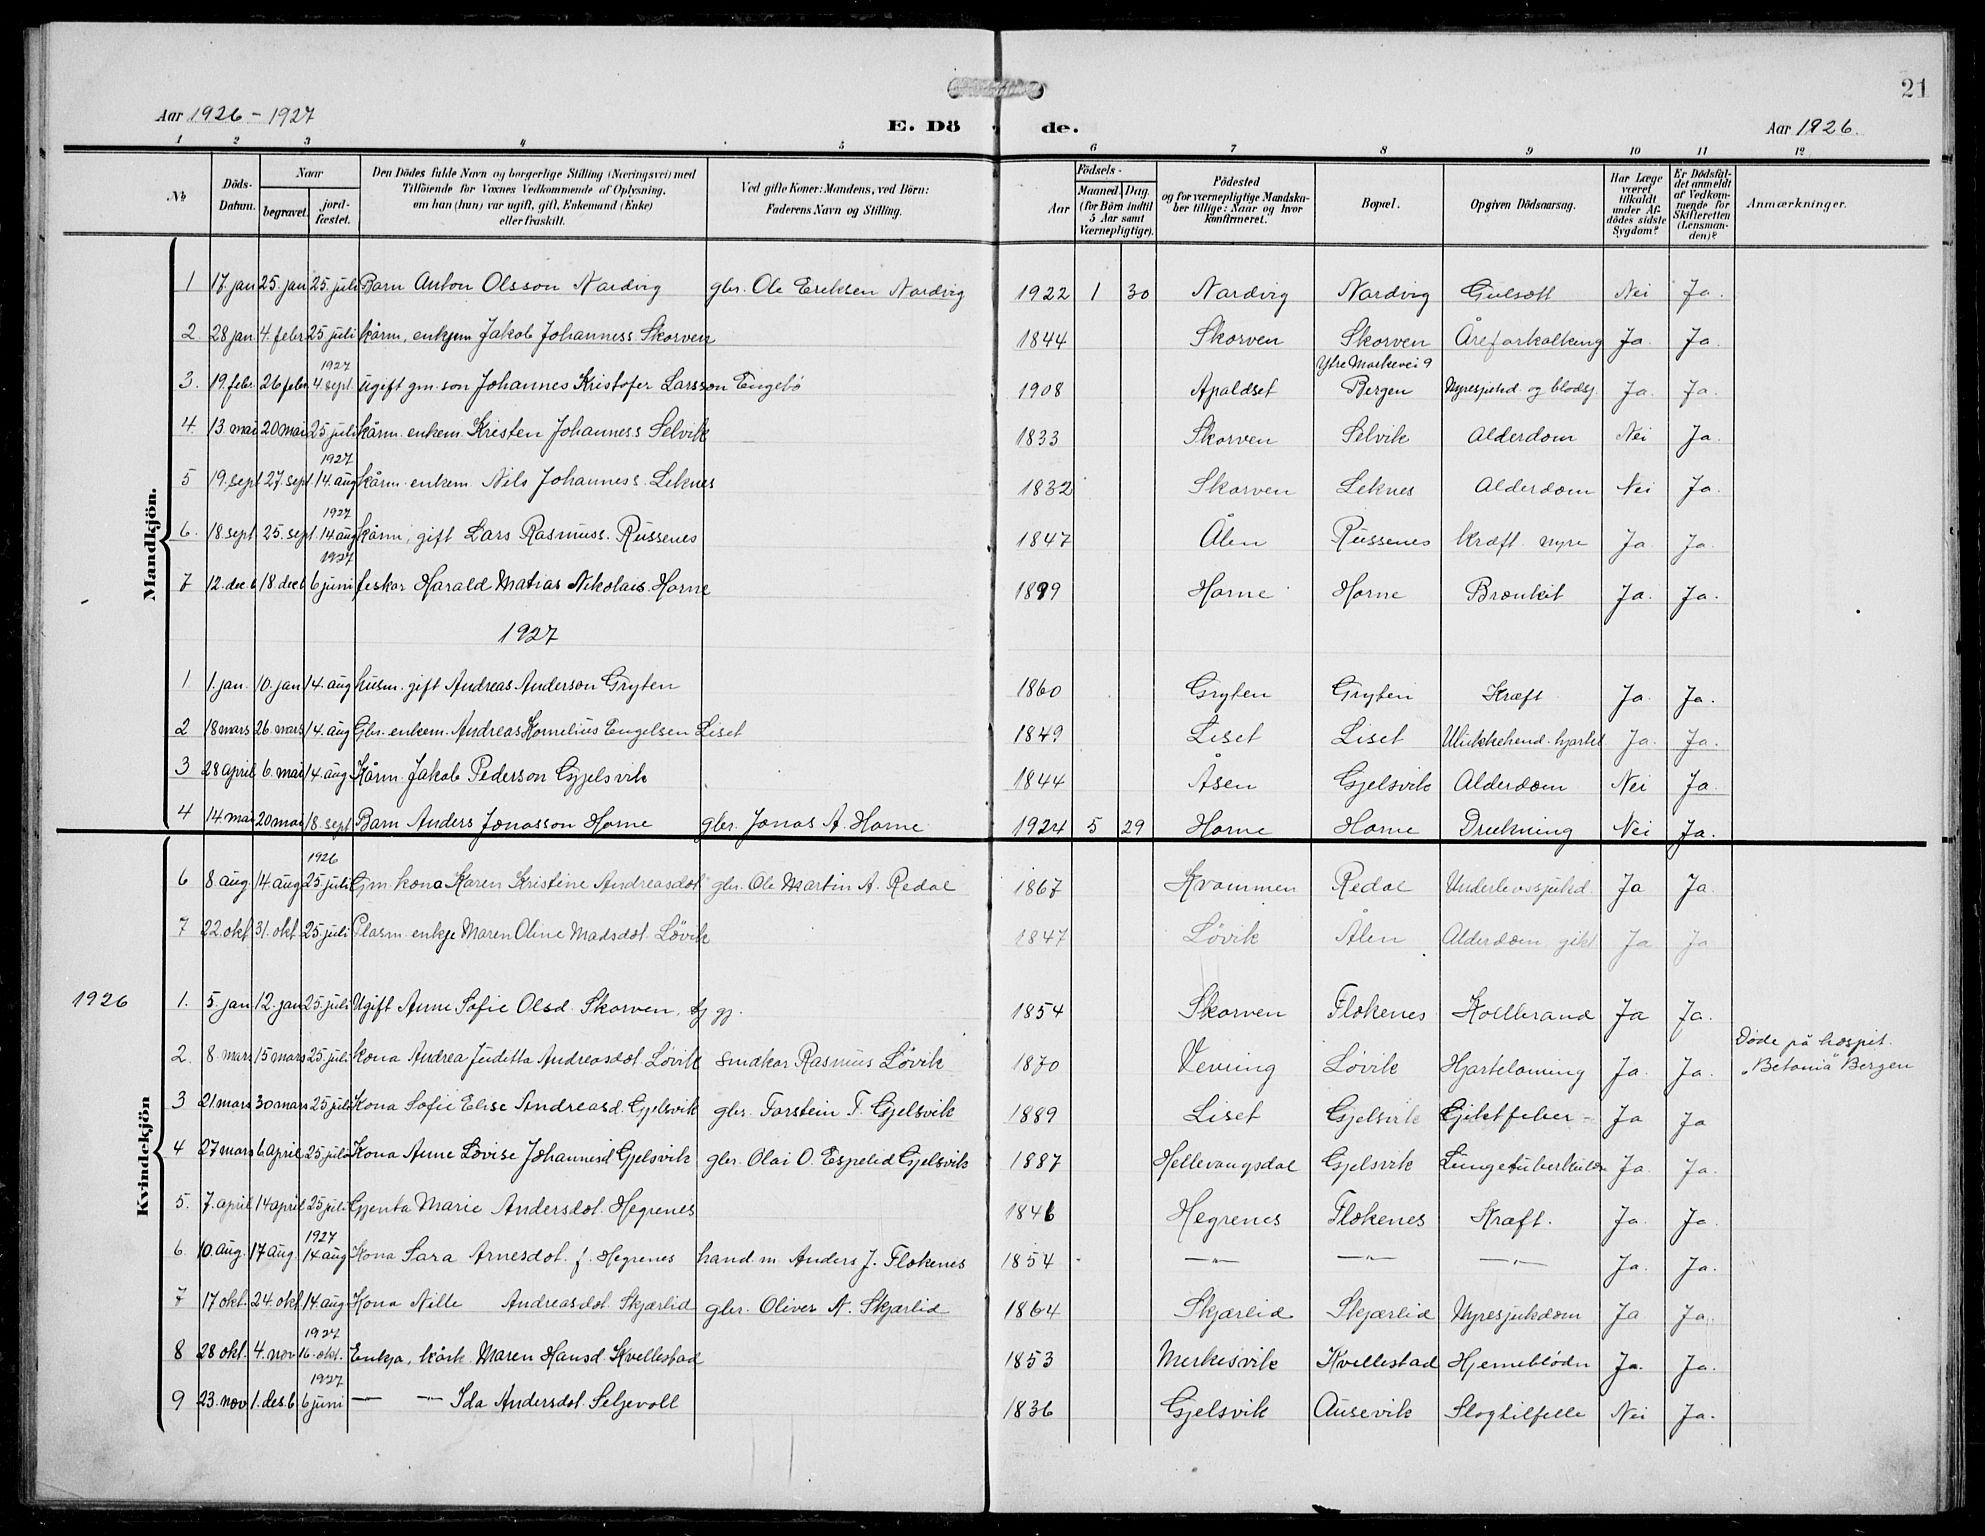 21
Aar 1926 - 1927 E. Dö de. Aar 1926.
1 2 3 4 5 6 7 8 9 10 11 12
№ Döds-Datum. Naar begravet. jord-fæstet. Den Dödes fulde Navn og borgerlige Stilling (Næringsvei) med Tilföiende for Voxnes Vedkommende af Oplysning, om han (hun) var ugift, gift, Enkemand (Enke) eller fraskilt. Ved gifte Koner: Mandens, ved Börn: Faderens Navn og Stilling. Födsels- Aar Maaned. Dag. (for Börn indtil 5 Aar samt Værnepligtige). Födested og for værnepligtige Mandskaber tillige: Naar og hvor Konfirmeret. Bopæl. Opgiven Dödsaarsag. Har Læge været tilkaldt under Afdödes sidste Sygdom? Er Dödsfaldet anmeldt af Vedkommende for Skifteretten (Lensmanden)? Anmærkninger.
Mandkjön.
1 17. jan 25. jan 25. juli Barn Anton Olsson Nardvig gbr. Ole Eriksen Nardvig 1922 1 30 Nardvig Nardvig Gulsott Nei Ja.
2. 28 jan 4. febr 25 juli kårm, enkjem Jakob Johanness. Skorven 1844 Skorven Skorven Åreforkalking Ja. Ja.
1927 Ytre Markevei 9
3. 19. febr 26 febr 4. sept. ugift gm. son Johannes Kristofer Larsson Engebö 1908 Apaldset Bergen Nyresjukd. og blodsj. Ja. Ja.
4. 13 mai 20 mai 25 juli kårm. enkem. Kristen Johanness Selvik 1833 Skorven Selvik Alderdom Nei Ja.
1927
5 19. sept 27. sept 14. aug kårm. enkem. Nils Johanness. Leknes 1832 Skorven Leknes Alderdom Nei Ja.
1927
6. 18. sept 25. sept. 14 aug kårm, gift Lars Rasmuss. Russenes 1847 Ålen Russenes kræft nyre Ja. Ja.
1927
7 12. dec. 18 dec. 6 juni fiskar Harald Matias Nikolais. Horne 1899 Horne Horne Bronkit Ja. Ja.
1927
1 1. jan. 10. jan 14. aug husm. gift Andreas Anderson Gryten 1860 Gryten Gryten Kræft Ja. Ja.
2 18 mars 26 mars 14. aug Gbr. enkem. Andreas Kornelius Engelsen Liset 1849 Liset Liset Ulukkehend. hjartel. Ja. Ja.
3 28 april 6. mai 14. aug Kårm. Jakob Pederson Gjelsvik 1844 Åsen Gjelsvik Alderdom Nei Ja.
4 14 mai 20 mai 18. sept Barn Anders Jonasson Horne gbr. Jonas A. Horne 1924 5 29 Horne Horne Drukning Nei Ja.
Kvindekjön
1926
6 8 aug. 14. aug 25. juli Gm. kona Karen Kristine Andreasdot gbr. Ole Martin A. Redal 1867 Kvammen Redal Underlivssjukd Ja Ja.
7 22. okt 31. okt. 25. juli Plasm. enkje Maren Oline Madsdot. Lövik 1847 Lövik Ålen Alderdom gikt Ja Ja
1926 1. 5. jan 12. jan 25. juli Ugift Anne Sofie Olsd. Skorven 1854 Skorven Flokenes Kollbrand Ja Ja.
Döde på hospit.
2. 8. mars 15 mars 25. juli kona Andrea Juditta Andreasdot Lövik smidkar Rasmus Lövik 1870 Vevring Lövik Hjartelaming Ja. Ja. "Betania" Bergen
3 21 mars 30 mars 25 juli Kona Sofie Elise Andreasd. Gjelsvik gbr. Torstein T. Gjelsvik 1889 Liset Gjelsvik Giktfeber - Ja Ja
4 27 mars 6 april 25 juli Kona Anne Lovise Johannesd Gjelsvik gbr. Olai O. Espelid Gjelsvik 1887 Hellevangsdal Gjelsvik Lungetuberkulos Ja. Ja.
5. 7. april 14 april 25. juli Gjenta Marie Andersdot. Hegrenes 1846 Hegrenes Flokenes Kræft. Ja. Ja.
1927
6. 10. aug. 17 aug. 14 aug Kona Sara Arnesdot. f. Hegrenes hand.m. Anders J. Flokenes 1854 — " — — " — — " — Ja. Ja.
7 17 okt. 24. okt 14. aug. Kona Nille Andreasdot. Skjærlid gbr. Oliver N. Skjærlid 1864 Skjærlid Skjærlid Nyresjukdom Ja Ja.
1927
8 28 okt. 4. nov. 16. okt. Enkja, kårk. Maren Hansd. Kvellestad 1853 Merkesvik Kvellestad Hjerneblødn Ja. Ja.
1927
9 23. nov 1. des. 6 juni — — Ida Andersdot. Seljevoll 1836 Gjelsvik Ausevik Slagtilfelle Nei Ja.